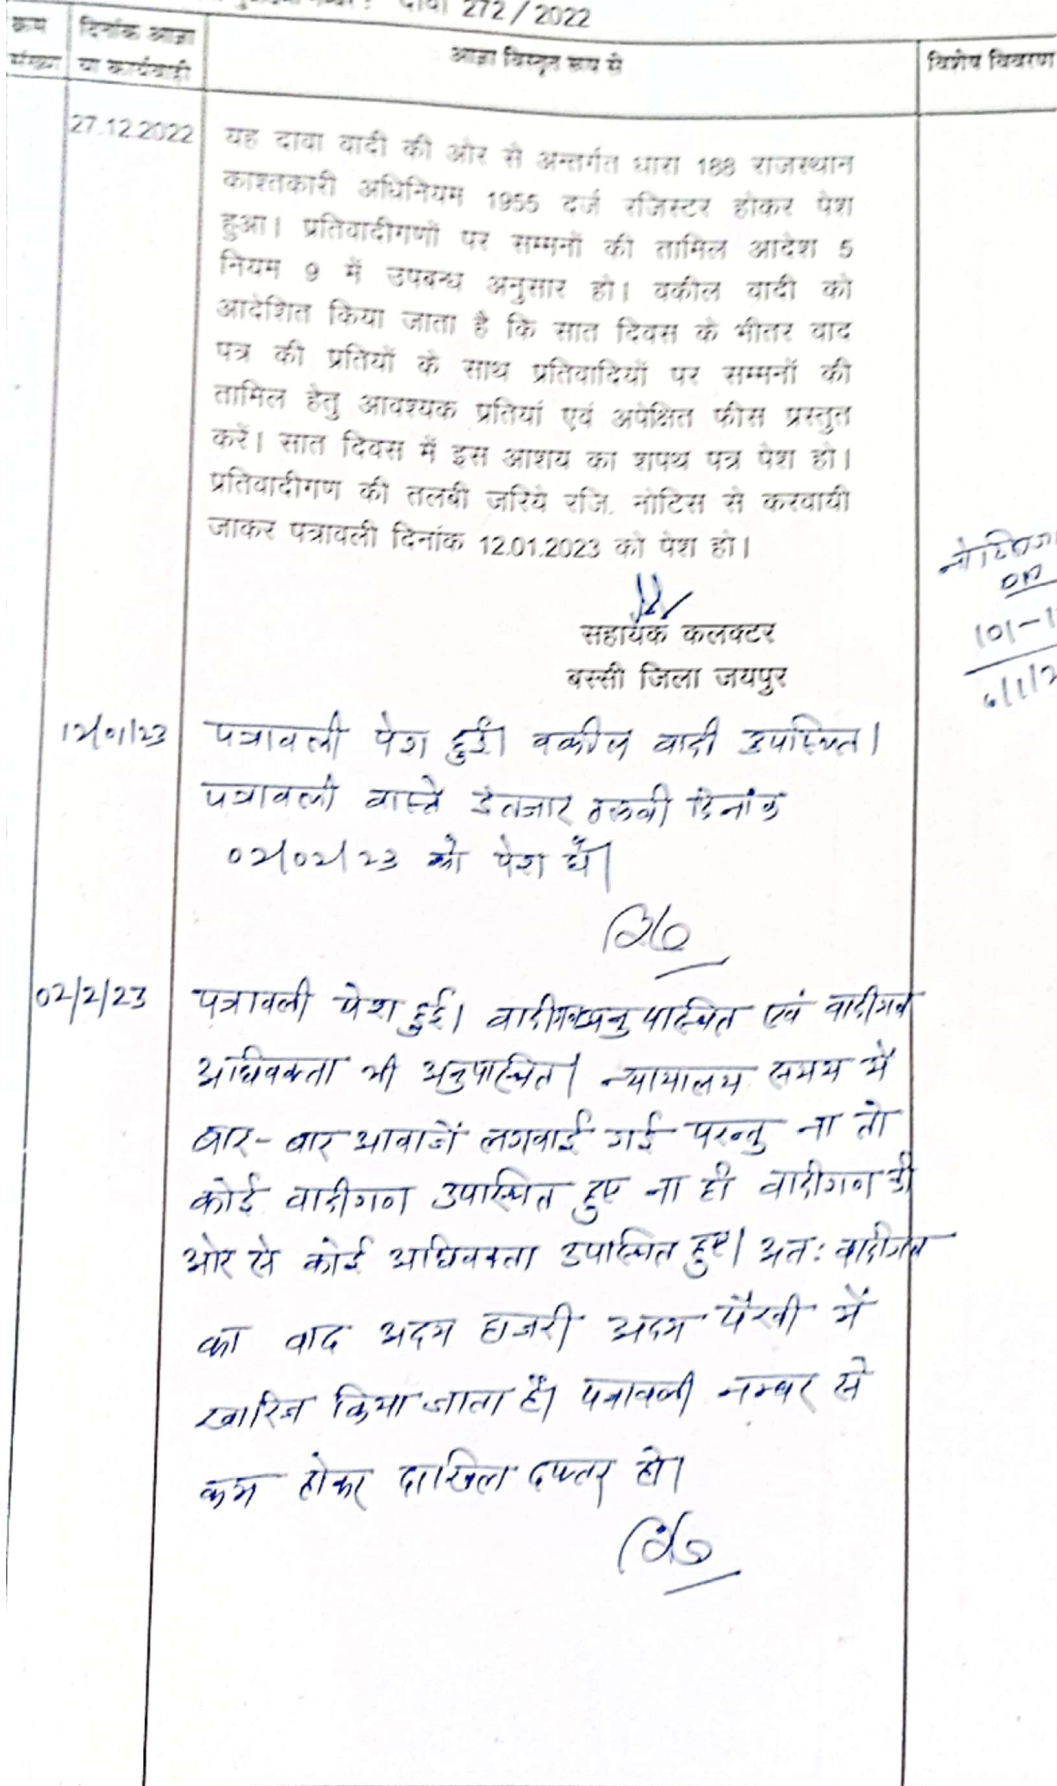 दावा 272/2022
क्रम
संख्या
दिनांक आज्ञा
या कार्यवाही
आज्ञा विस्तृत रूप से
विशेष विवरण
27.12.2022
यह दावा वादी की ओर से अन्तर्गत धारा 188 राजस्थान
काश्तकारी अधिनियम 1955 दर्ज रजिस्टर होकर पेश
हुआ। प्रतिवादीगणों पर सम्मनों की तामिल आदेश 5
नियम 9 में उपबन्ध अनुसार हो। वकील वादी को
आदेशित किया जाता है कि सात दिवस के भीतर वाद
पत्र की प्रतियों के साथ प्रतिवादियों पर सम्मनों की
तामिल हेतु आवश्यक प्रतियां एवं अपेक्षित फीस प्रस्तुत
करें। सात दिवस में इस आशय का शपथ पत्र पेश हो।
प्रतिवादीगण की तलबी जरिये रजि. नोटिस से करवायी
जाकर पत्रावली दिनांक 12.01.2023 को पेश हो।
सहायक कलक्टर
बस्सी जिला जयपुर
12/01/23
पत्रावली पेश हुई। वकील वादी उपस्थित।
पत्रावली वास्ते इंतजार तलबी दिनांक
02/02/23 को पेश हो।
02/2/23
पत्रावली पेश हुई। वादीगण अनुपस्थित एवं वादीगण
अधिवक्ता भी अनुपस्थित। न्यायालय समय में
बार-बार आवाजें लगवाई गई परन्तु ना तो
कोई वादीगण उपस्थित हुए ना ही वादीगण की
ओर से कोई अधिवक्ता उपस्थित हुए। अतः वादीगण
का वाद अदम हाजरी अदम पैरवी में
खारिज किया जाता है। पत्रावली नम्बर से
कम होकर दाखिल दफ्तर हो।